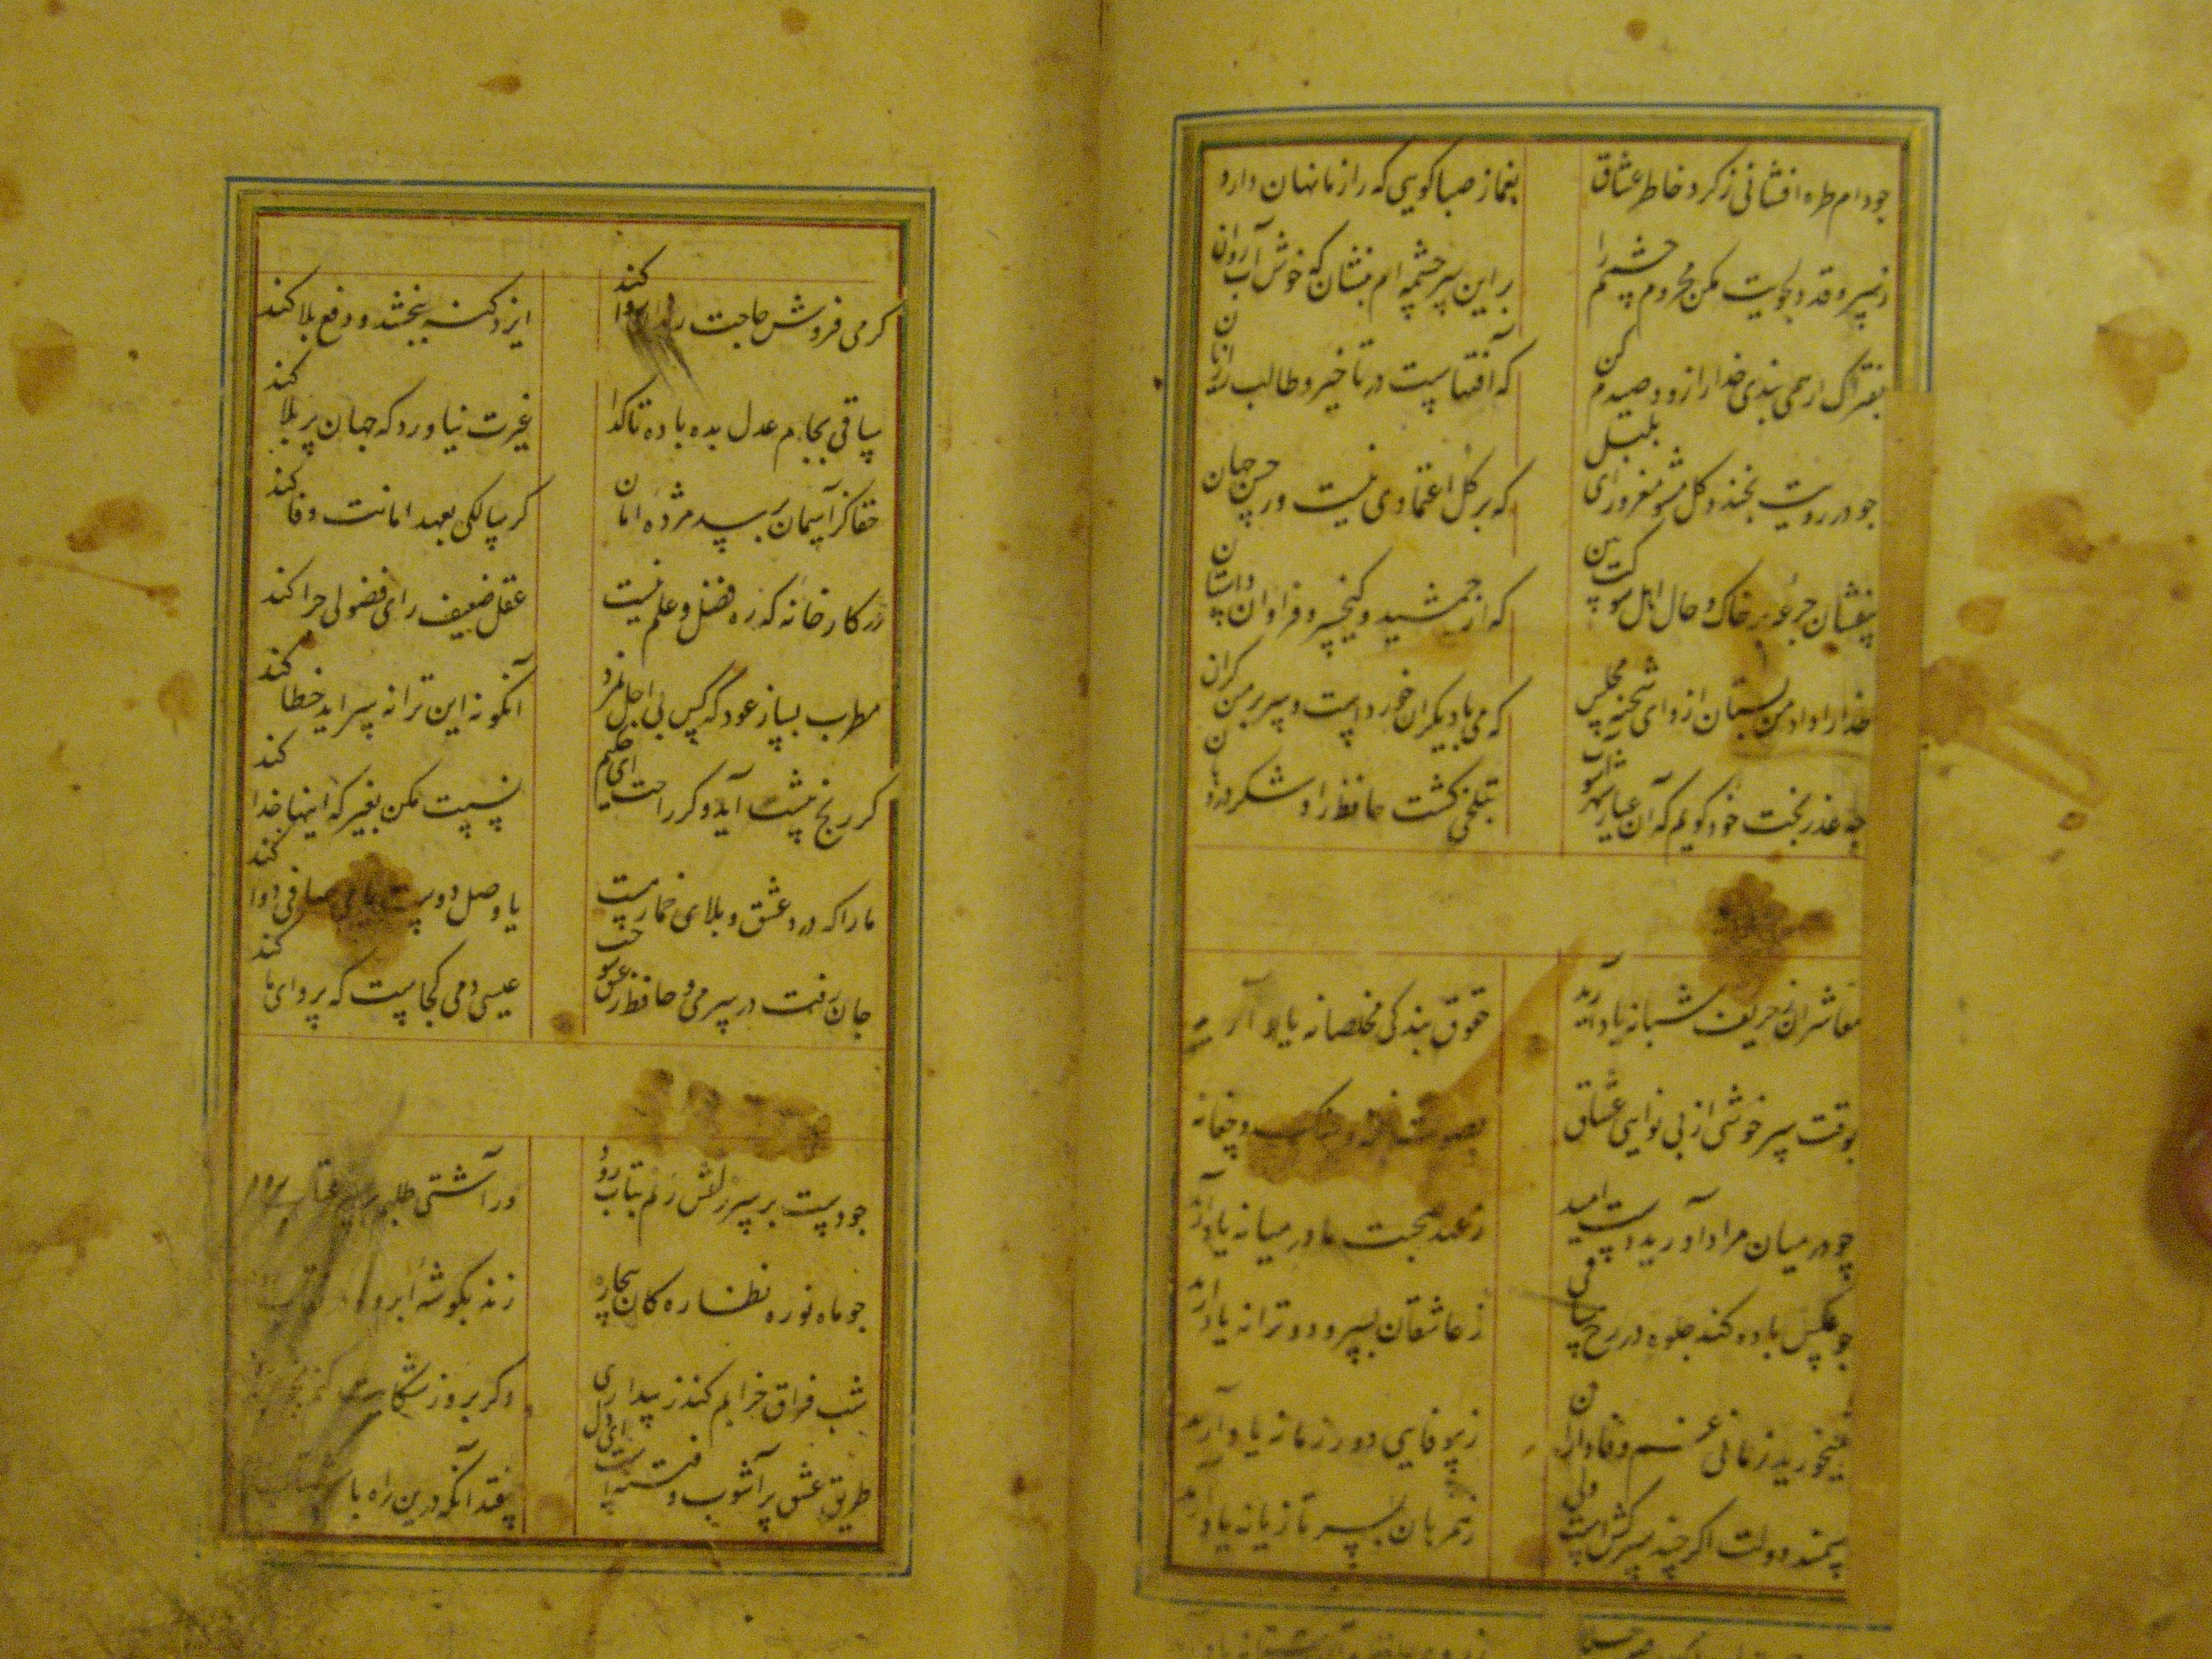 جو دام طره افشانی ز کرد خاطر عشاق بغماز صبا کویی که راز ما نهان دارد
ز سرو قد دلجویت مکن محروم چشمم را برین سرچشمه ام بنشان که خوش آب روان
بفتراک ار همی بندی خدا را زود صیدم کن که آفتهاست در تاخیر و طالب را زیان
جو در رویت بخندد کل مشو مغرور ای بلبل که بر کل اعتمادی نیست ور حسن جهان
بیفشان جرعه بر خاک و حال اهل شوکت بین که از جمشید و کیخسرو فراوان داستان
خدا را داد من بستان ازو ای شحنه مجلس که می با دیکران خوردست و سر بر من کران
چه عذر بخت خود کویم که آن عیار شهرآشوب بتلخی کشت حافظ را و شکر در دهان
معاشران ز حریف شبانه یاد آرید حقوق بندکی مخلصانه یاد آرید
بوقت سرخوشی از بی نوایی عشاق بصوت نغمه و چنک و چغانه
چو در میان مراد آورید دست امید ز عهد صحبت ما در میانه یاد آرید
جو عکس باده کند جلوه در رخ ساقی ز عاشقان بسرود و ترانه یاد آرید
نمیخورید زمانی غم وفاداران ز بیوفایی دور زمانه یاد آرید
سمند دولت اکر چند سرکش است ولی ز همرهان بسر تازیانه یاد آرید
کر می فروش حاجت رندان روا کند ایزد کنه ببخشد و دفع بلا کند
ساقی بجام عدل بده باده تا کدا غیرت نیاورد که جهان پر بلا کند
حقا کز آسمان برسد مژده امان کر سالکی بعهد امانت وفا کند
در کارخانه که ره فضل و علم نیست عقل ضعیف رای فضولی چرا کند
مطرب بساز عود که کس بی اجل نمرد آنکو نه این ترانه سراید خطا کند
کر رنج پیشت آید و کر راحت ای حکیم نسبت مکن بغیر که اینها خدا کند
ما را که درد عشق و بلای خمارست یا وصل دوست یا می صافی دوا کند
جان رفت در سر می و حافظ ز عشق سوخت عیسی دمی کجاست که پروای ما کند
جو دست بر سر زلفش زنم بتاب رود ور آشتی طلبم بر سر عتاب رود
جو ماه نو ره نظاره کان بیچاره زند بکوشه ابرو
شب فراق خرابم کند ز بیداری وکر بروز شکایت کنم
طریق عشق پرآشوب و فتنه است ای دل بیفتد آنکه درین راه با شتاب